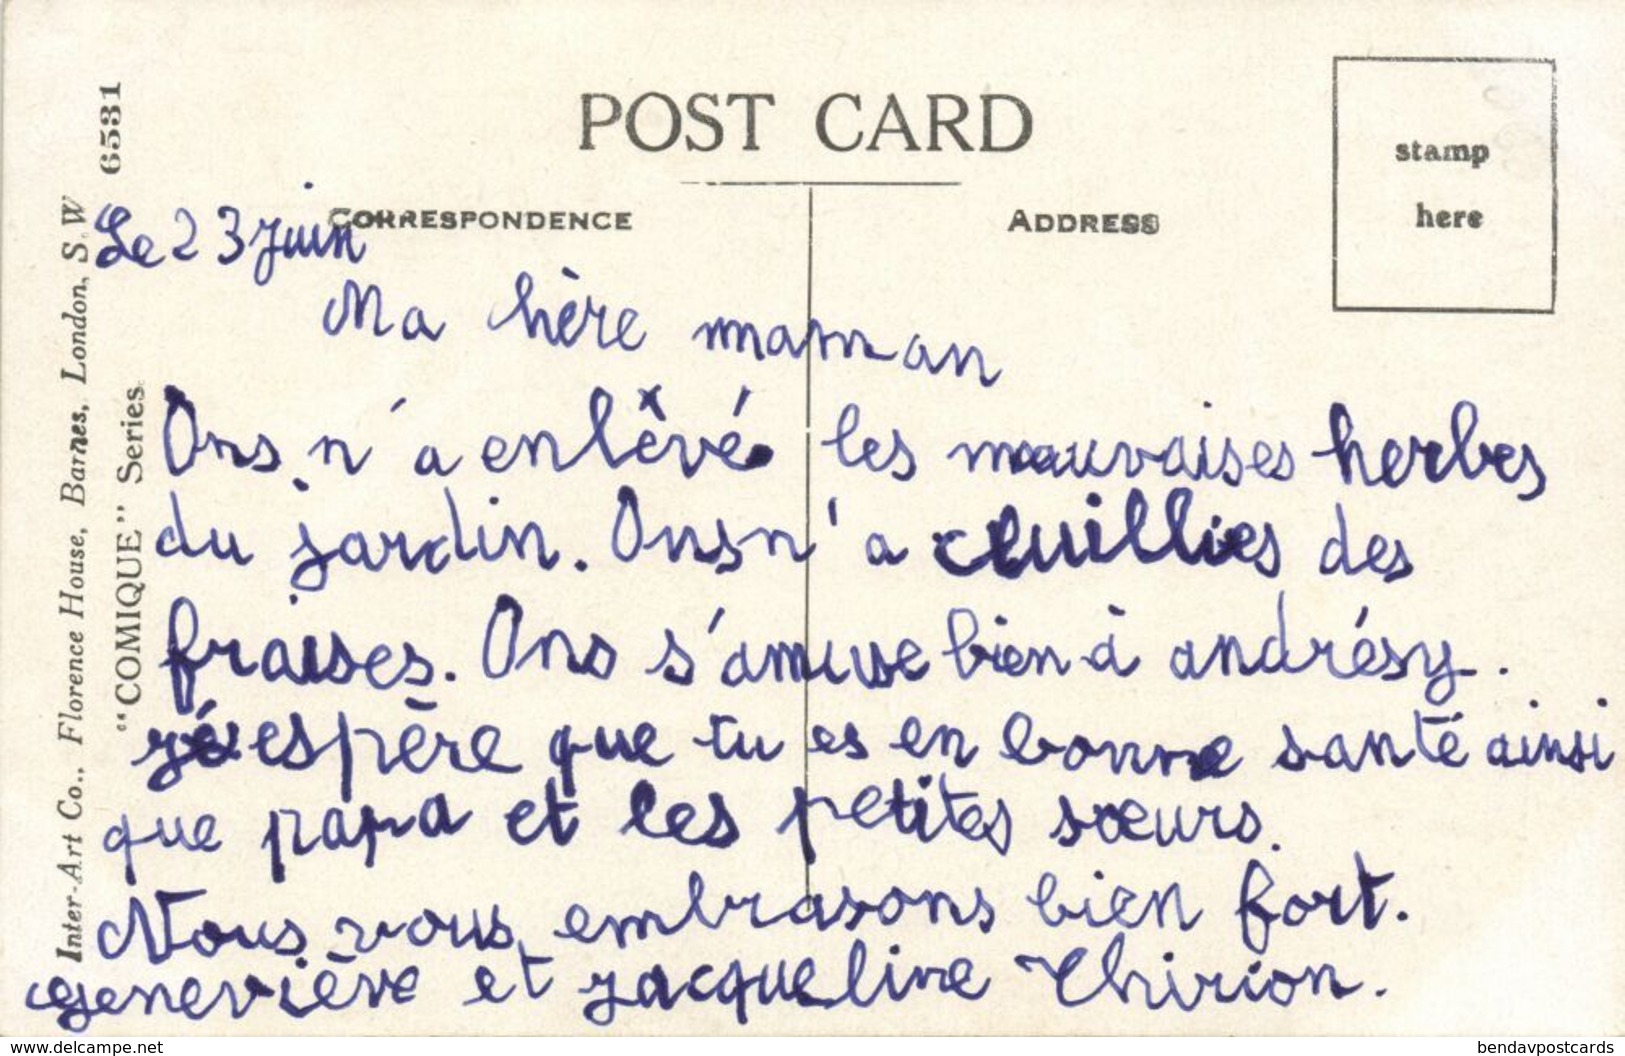 POST CARD
stamp
here
CORRESPONDENCE
ADDRESS
6531
Inter-Art Co., Florence House, Barnes, London, S.W
"COMIQUE" Series.
Le 23 juin
Ma hère maman
Ons n'a enlêvé les mauvaises herbes
du jardin. Ons n'a cluillies des
fraises. Ons s'amuse bien à andrésy.
jé espère que tu es en bonne santé ainsi
que papa et les petites sœurs.
Nous vous embrasons bien fort.
Geneviève et jacqueline Thirion.
www.delcampe.net
bendavpostcards